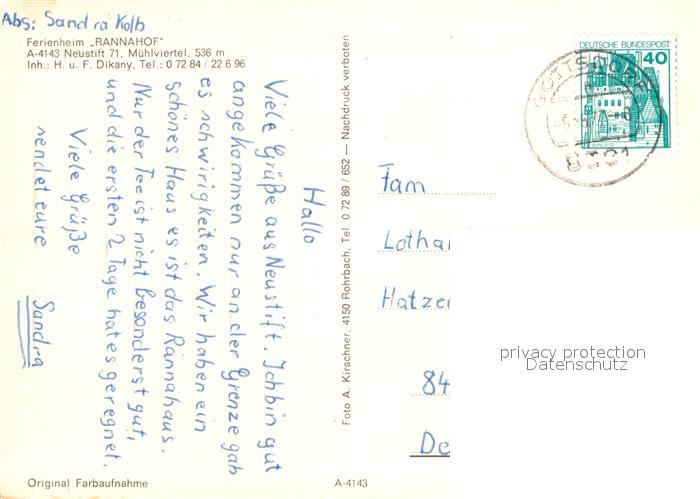 Abs: Sandra Kolb
Ferienheim „RANNAHOF"
A-4143 Neustift 71, Mühlviertel, 536 m
Inh.: H. u. F. Dikany, Tel.: 0 72 84 / 22 6 96
Hallo
Viele Grüße aus Neustift. Ich bin gut
angekommen nur an der Grenze gab
es schwirigkeiten. Wir haben ein
schönes Haus es ist das Rannahaus.
Nur der Tee ist nicht besonderst gut,
und die ersten 2 Tage hat es geregnet.
Viele Grüße
sendet eure
Sandra
Original Farbaufnahme
Foto A. Kirschner, 4150 Rohrbach, Tel. 0 72 89 / 652 — Nachdruck verboten
A-4143
DEUTSCHE BUNDESPOST
40
GOTTSDORF
Fam
Lothar
Hatze
84
De
privacy protection
Datenschutz